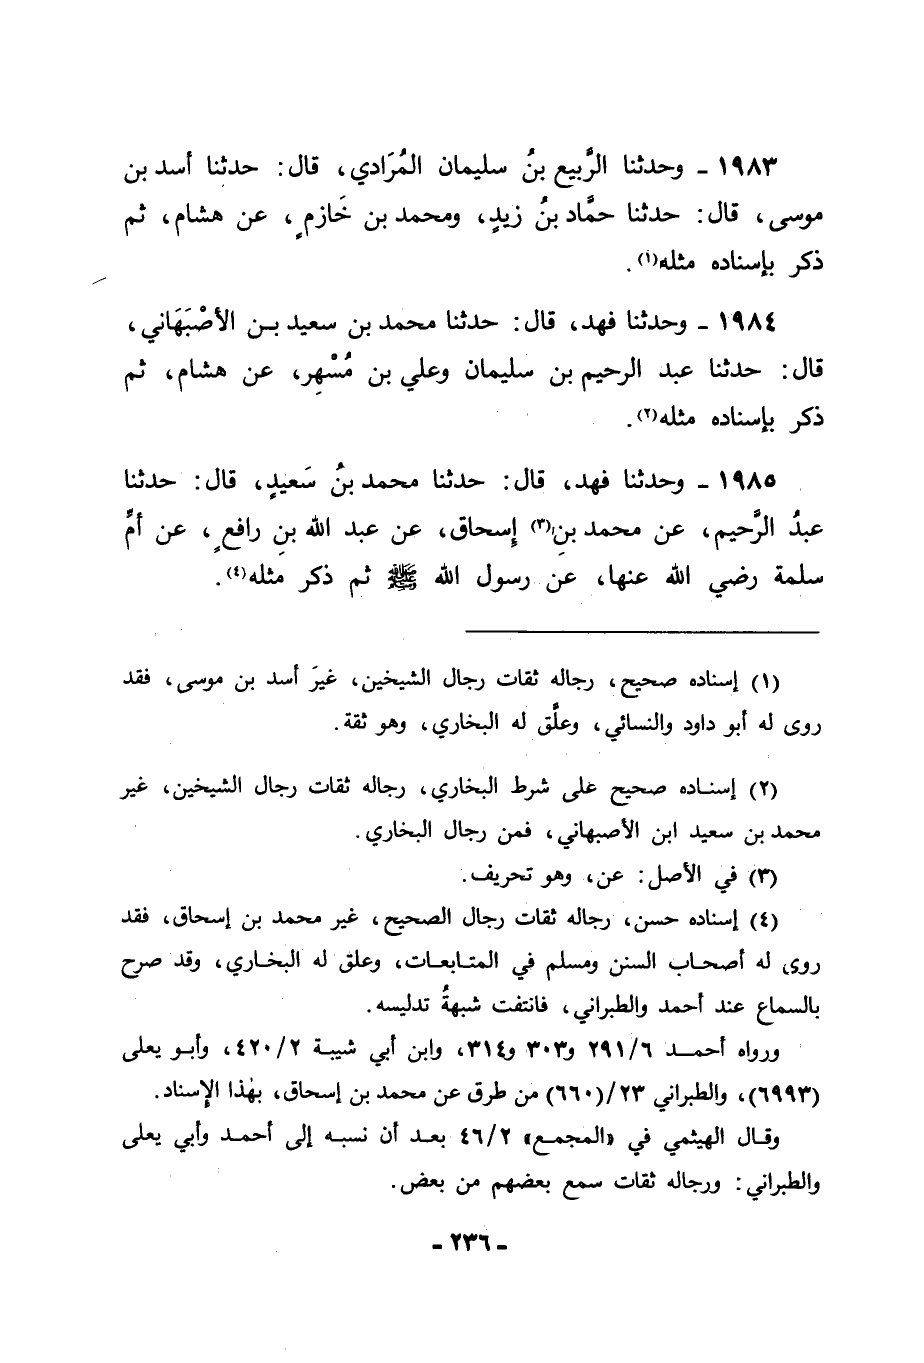 ١٩٨٣ ـ وحدثنا الرَّبيع بنُ سليمان المُرَادي، قال: حدثنا أسد بن
موسى، قال: حدثنا حمَّاد بنُ زيدٍ، ومحمد بن خَازمٍ، عن هشام، ثم
ذكر بإسناده مثله(١).
١٩٨٤ ـ وحدثنا فهد، قال: حدثنا محمد بن سعيد بـن الأصْبَهَاني،
قال: حدثنا عبد الرحيم بن سليمان وعلي بن مُسْهِر، عن هشام، ثم
ذكر بإسناده مثله(٢).
١٩٨٥ ـ وحدثنا فهد، قال: حدثنا محمد بنُ سَعيدٍ، قال: حدثنا
عبدُ الرَّحيم، عن محمد بنِ(٣) إسحاق، عن عبد الله بنِ رافعٍ، عن أمِّ
سلمة رضي الله عنها، عن رسول الله ﷺ ثم ذكر مثله(٤).
(١) إسناده صحيح، رجاله ثقات رجال الشيخين، غيرَ أسد بن موسى، فقد
روى له أبو داود والنسائي، وعلَّق له البخاري، وهو ثقة.
(٢) إسنـاده صحيح على شرط البخاري، رجاله ثقات رجال الشيخين، غير
محمد بن سعيد ابن الأصبهاني، فمن رجال البخاري.
(٣) في الأصل: عن، وهو تحريف.
(٤) إسناده حسن، رجاله ثقات رجال الصحيح، غير محمد بن إسحاق، فقد
روى له أصحـاب السنن ومسلم في المتـابعـات، وعلق له البخـاري، وقد صرح
بالسماع عند أحمد والطبراني، فانتفت شبهةُ تدليسه.
ورواه أحمـــد ٢٩١/٦ و٣٠٣ و٣١٤، وابن أبي شيبـة ٤٢٠/٢، وأبـو يعلى
(٦٩٩٣)، والطبراني ٢٣/(٦٦٠) من طرق عن محمد بن إسحاق، بهٰذا الإسناد.
وقـال الهيثمي في «المجمـع» ٤٦/٢ بعـد أن نسبـه إلى أحمـد وأبي يعلى
والطبراني: ورجاله ثقات سمع بعضهم من بعض.
ـ ٢٣٦ ـ